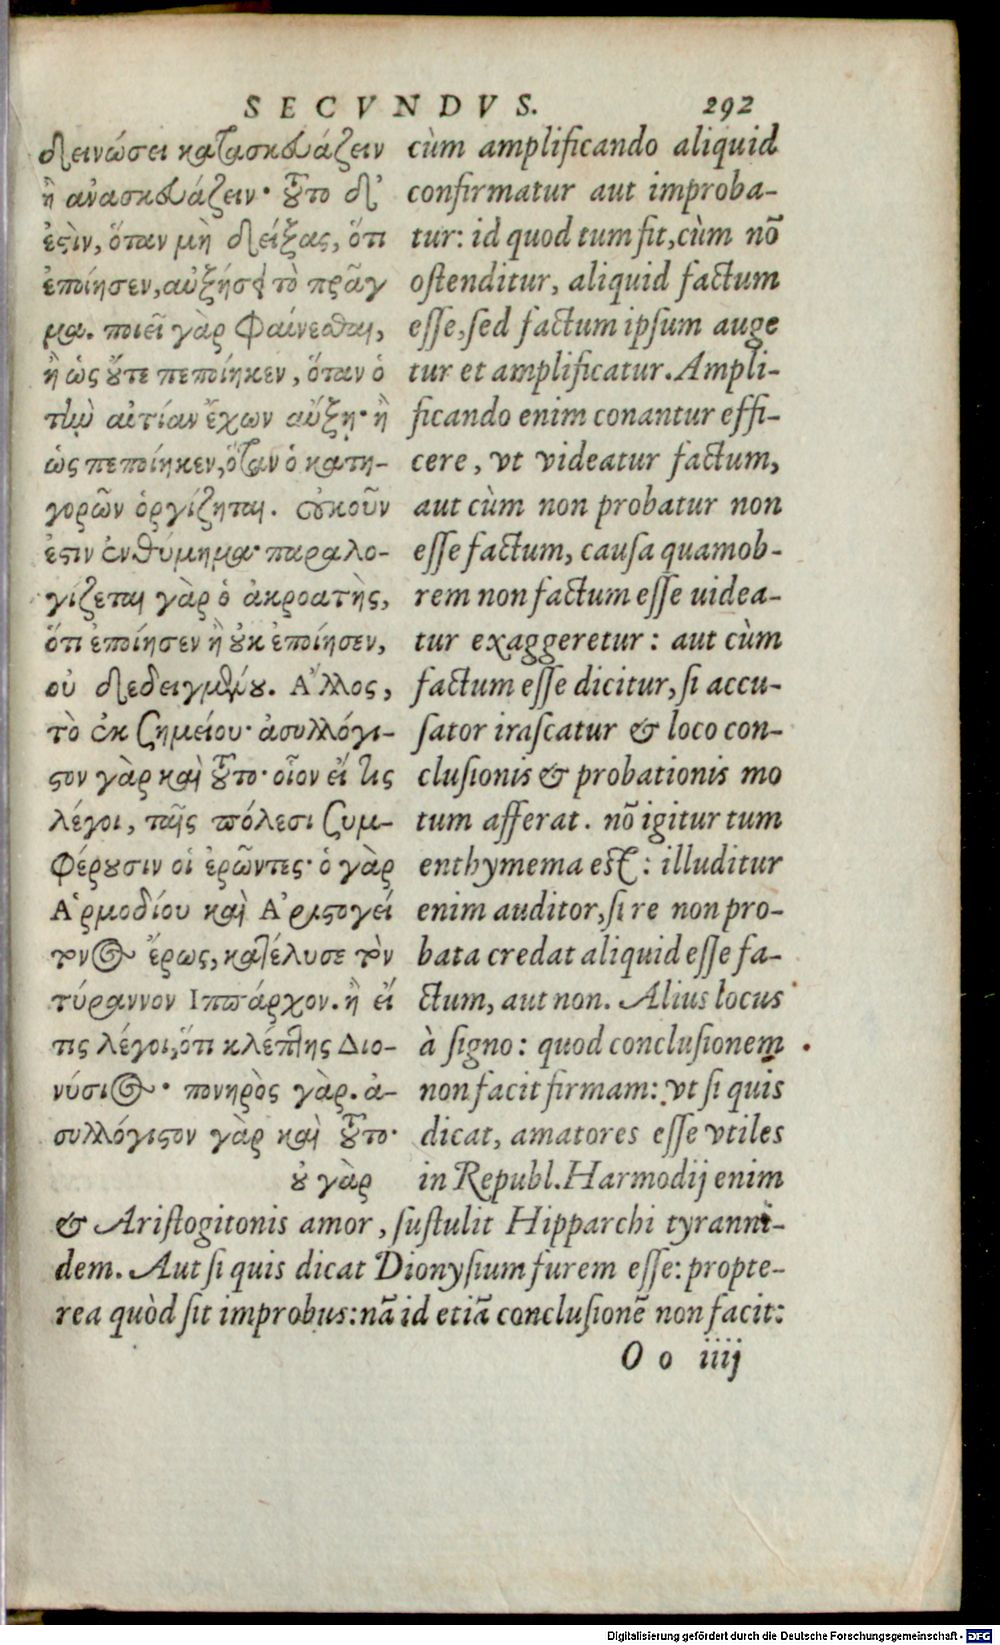 SECVNDVS. 292
δεινώσει κατασκευάζειν
ἢ ἀνασκευάζειν· τοῦτο δ'
ἐστὶν, ὅταν μὴ δείξας, ὅτι
ἐποίησεν, αὐξήσῃ τὸ πρᾶγ
μα. ποιεῖ γὰρ φαίνεσθαι,
ἢ ὡς οὔτε πεποίηκεν, ὅταν ὁ
τὴν αἰτίαν ἔχων αὔξῃ· ἢ
ὡς πεποίηκεν, ὅταν ὁ κατη-
γορῶν ὀργίζηται. οὐκοῦν
ἐστιν ἐνθύμημα· παραλο-
γίζεται γὰρ ὁ ἀκροατὴς,
ὅτι ἐποίησεν ἢ οὐκ ἐποίησεν,
οὐ δεδειγμένου. Ἄλλος,
τὸ ἐκ σημείου· ἀσυλλόγι-
στον γὰρ καὶ τοῦτο· οἷον εἴ τις
λέγοι, ταῖς πόλεσι συμ-
φέρουσιν οἱ ἐρῶντες· ὁ γὰρ
Ἁρμοδίου καὶ Ἀριστογεί
τονος ἔρως, κατέλυσε τὸν
τύραννον Ιππάρχον. ἢ εἴ
τις λέγοι, ὅτι κλέπτης Διο-
νύσιος· πονηρὸς γάρ. ἀ-
συλλόγιστον γὰρ καὶ τοῦτο·
οὐ γὰρ
cùm amplificando aliquid
confirmatur aut improba-
tur: id quod tum fit, cùm nõ
ostenditur, aliquid factum
esse, sed factum ipsum auge
tur et amplificatur. Ampli-
ficando enim conantur effi-
cere, vt videatur factum,
aut cùm non probatur non
esse factum, causa quamob-
rem non factum esse uidea-
tur exaggeretur: aut cùm
factum esse dicitur, si accu-
sator irascatur & loco con-
clusionis & probationis mo
tum afferat. nõ igitur tum
enthymema est: illuditur
enim auditor, si re non pro-
bata credat aliquid esse fa-
ctum, aut non. Alius locus
à signo: quod conclusionem
non facit firmam: vt si quis
dicat, amatores esse vtiles
in Republ. Harmodij enim
& Aristogitonis amor, sustulit Hipparchi tyranni-
dem. Aut si quis dicat Dionysium furem esse: propte-
rea quòd sit improbus: nã id etiã conclusionẽ non facit:
O o iiij
Digitalisierung gefördert durch die Deutsche Forschungsgemeinschaft - DFG